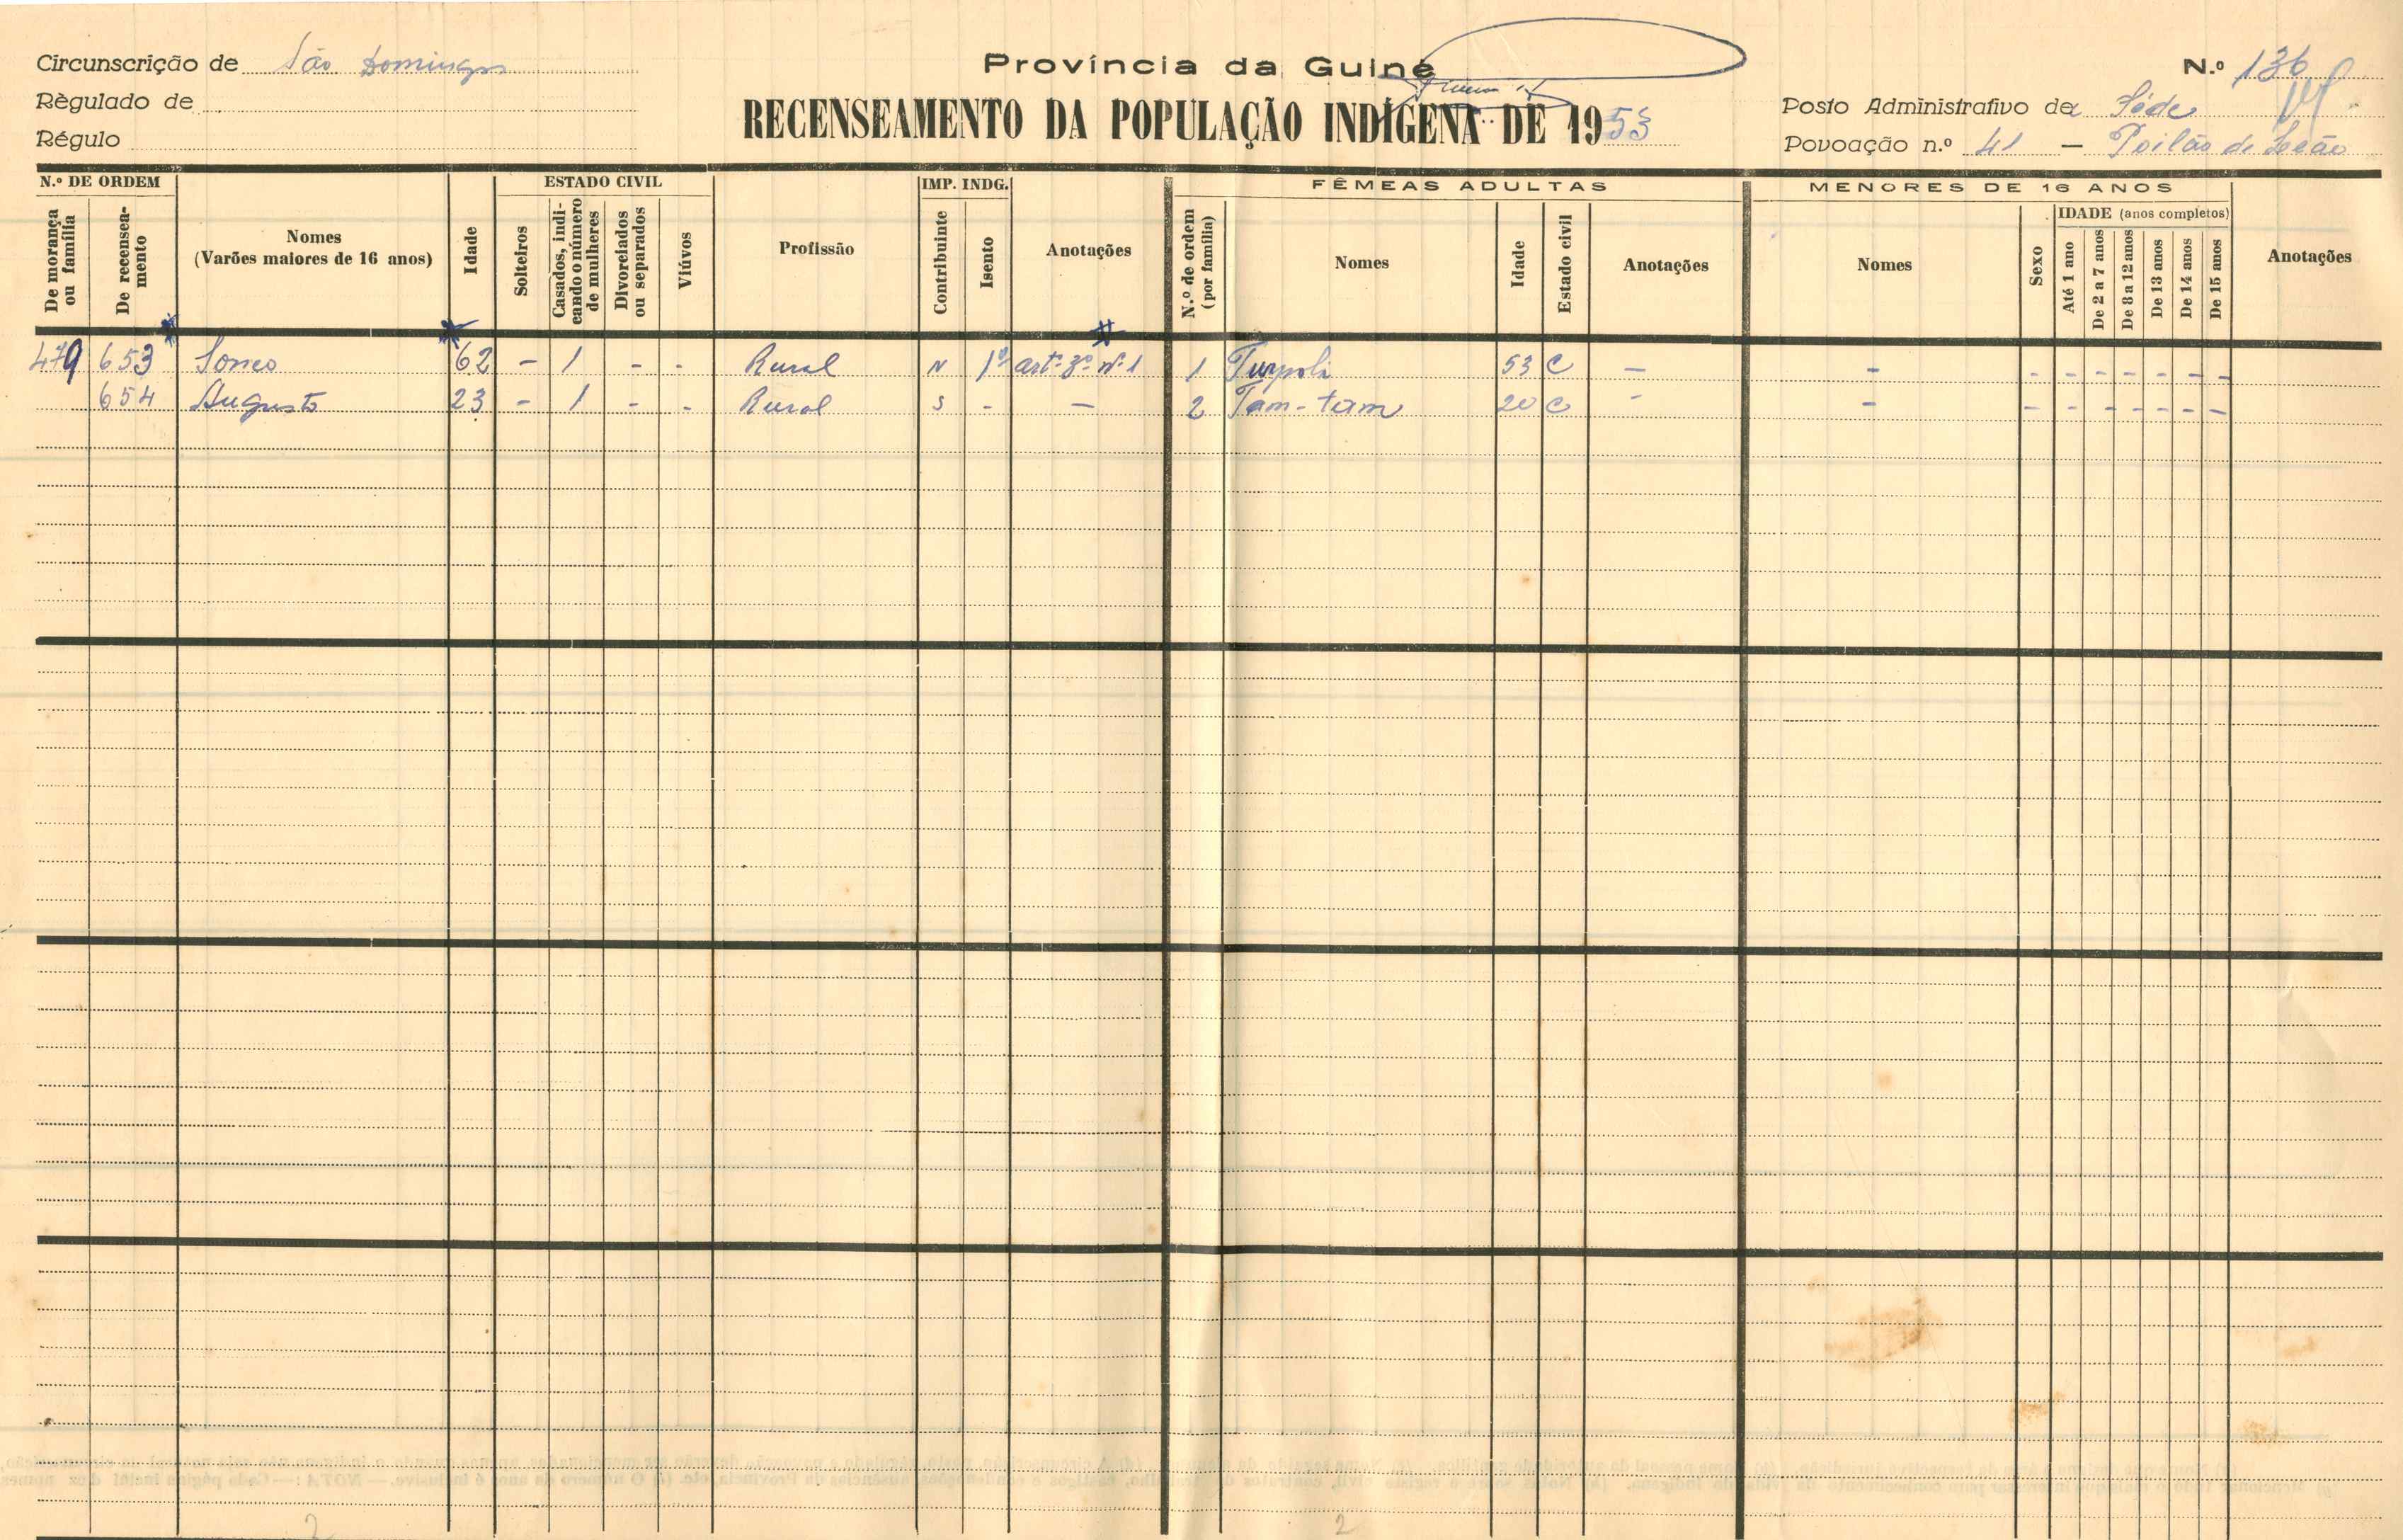 Circunscrição de São Domingos
Província da Guiné
N.º 136
Règulado de
RECENSEAMENTO DA POPULAÇÃO INDÍGENA DE 1953
Posto Administrativo da Séde
Régulo
Povoação n.º 41 — Poilão de Leão
N.º DE ORDEM
ESTADO CIVIL
IMP. INDG.
FÊMEAS ADULTAS
MENORES DE 16 ANOS
IDADE (anos completos)
De morança ou família
De recenseamento
Nomes
(Varões maiores de 16 anos)
Idade
Solteiros
Casados, indicando o número de mulheres
Divorciados ou separados
Viúvos
Profissão
Contribuinte
Isento
Anotações
N.º de ordem (por família)
Nomes
Idade
Estado civil
Anotações
Nomes
Sexo
Até 1 ano
De 2 a 7 anos
De 8 a 12 anos
De 13 anos
De 14 anos
De 15 anos
Anotações
479 653 62 - 1 - - Rural N 1º artº 3º nº 1 1 53 C — - - - - - - - -
654 Augusto 23 - 1 - - Rural S - — 2 Tam-tam 20 C - - - - - - - - -
2 2